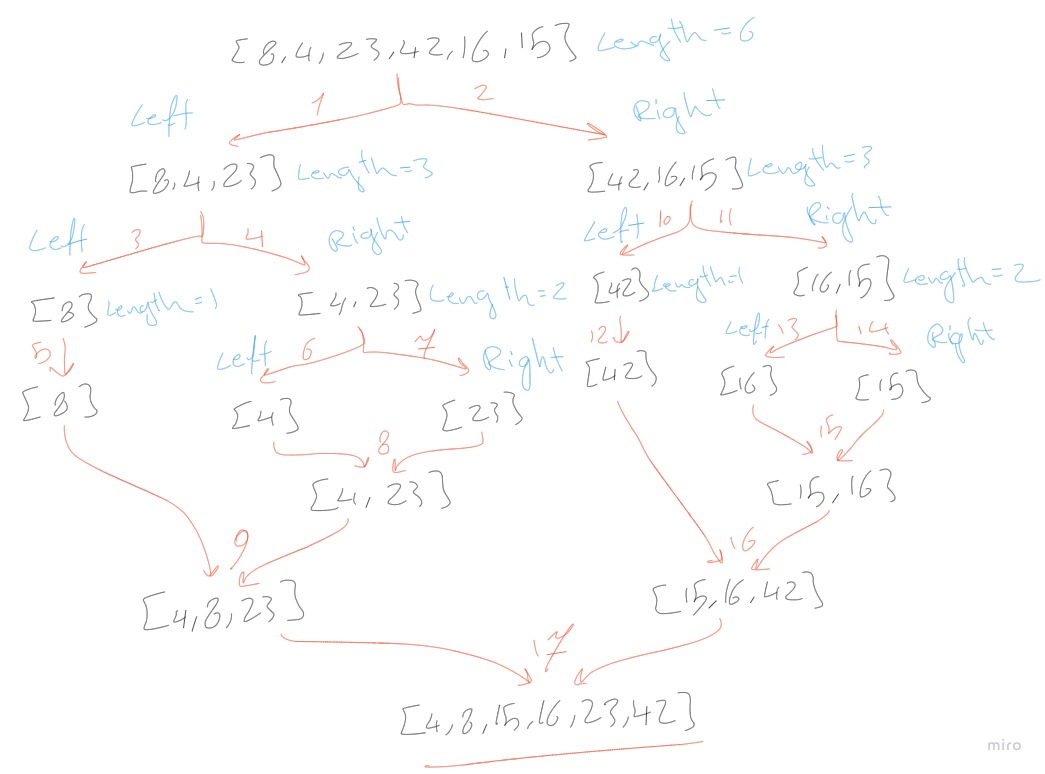 [8,4,23,42,16,15] Length=6
Left 1 2 Right
[8,4,23] Length=3 [42,16,15] Length=3
Left 3 4 Right Left 10 11 Right
[8] Length=1 [4,23] Length=2 [42] Length=1 [16,15] Length=2
5 Left 6 7 Right 12 Left 13 14 Right
[8] [4] [23] [42] [16] [15]
8 15
[4,23] [15,16]
9 16
[4,8,23] [15,16,42]
17
[4,8,15,16,23,42]
miro